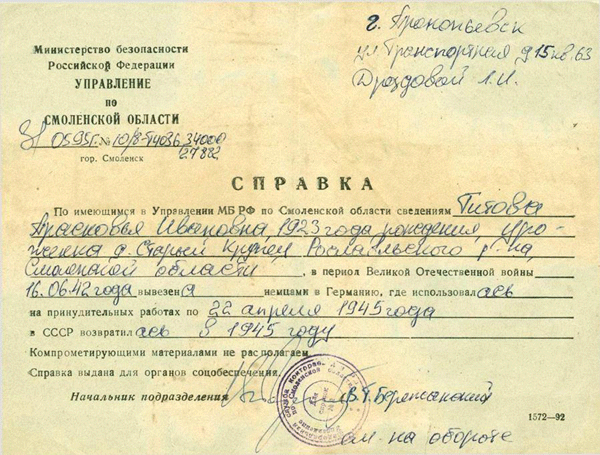 г. Прокопьевск
ул Транспортная д 15 кв. 63
Дроздовой Л.И.
Министерство безопасности
Российской Федерации
УПРАВЛЕНИЕ
ПО
СМОЛЕНСКОЙ ОБЛАСТИ
31 05 95г. № 10/8-Т4036 34000
27882
гор. Смоленск
СПРАВКА
По имеющимся в Управлении МБ РФ по Смоленской области сведениям Титова
Прасковья Ивановна, 1923 года рождения, уро-
женка д. Старый Рославльского р-на,
Смоленской области, в период Великой Отечественной войны
16.06.42 года вывезена немцами в Германию, где использовалась
на принудительных работах по 22 апреля 1945 года
в СССР возвратилась в 1945 году
Компрометирующими материалами не располагаем.
Справка выдана для органов соцобеспечения.
Начальник подразделения В.Г. Бережанский
1572—92
см. на обороте